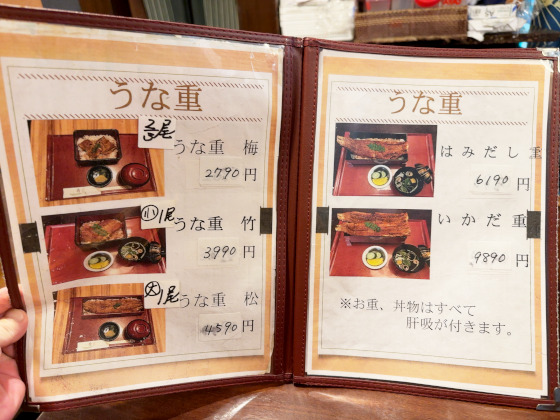 うな重
うな重 梅
2790円
㊙小1尾
うな重 竹
3990円
大1尾
うな重 松
4590円
うな重
はみだし重
6190円
いかだ重
9890円
※お重、丼物はすべて
肝吸が付きます。